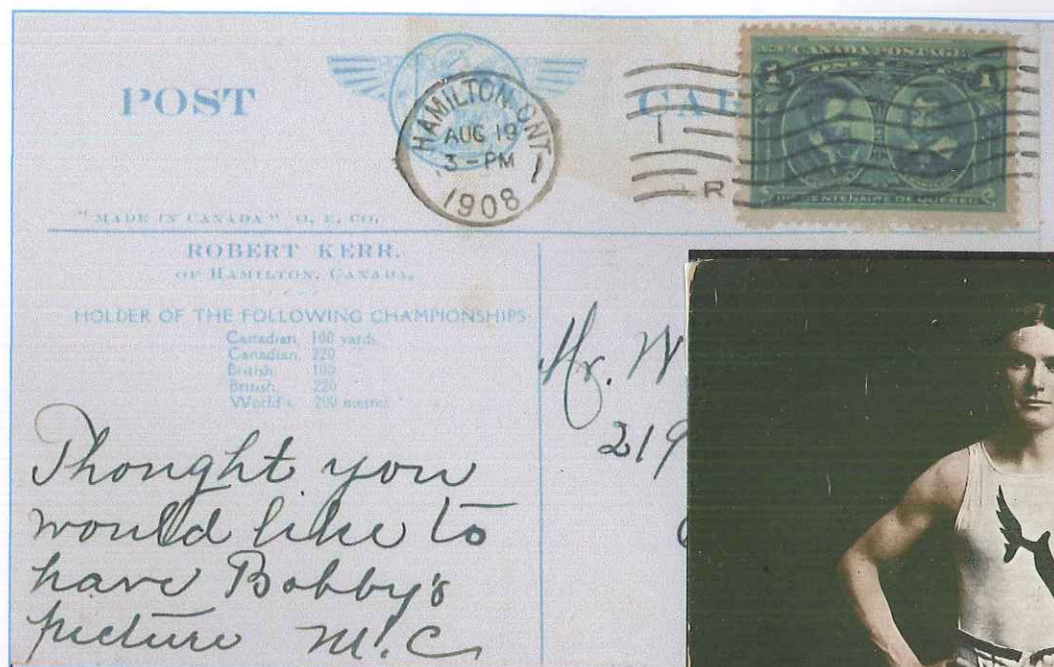 POST CAR
HAMILTON, ONT
AUG 19
3 - PM
1908
I
R
CANADA POSTAGE
1 ONE 1
CENTENAIRE DE QUÉBEC
"MADE IN CANADA" O. E. CO.
ROBERT KERR,
OF HAMILTON, CANADA,
HOLDER OF THE FOLLOWING CHAMPIONSHIPS
Canadian, 100 yards
Canadian, 220
British, 100
British, 220
World's, 200 metres
Thought you
would like to
have Bobby's
picture M.C.
Mr. W
219